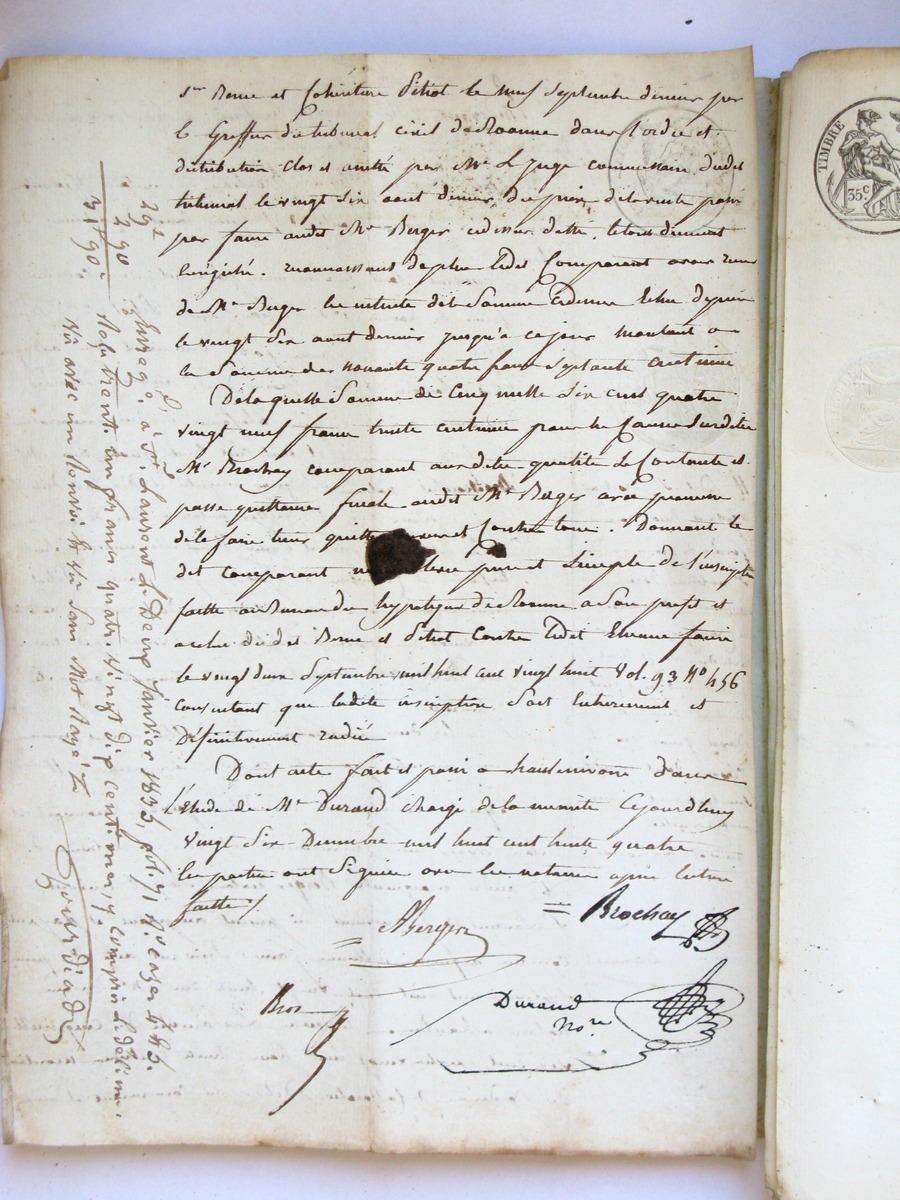 Sr Berne et Cohéritiers Détrat le neuf Septembre dernier par
le Greffier du tribunal civil de Roanne dans l'ordre et
distribution clos et arrêté par Mr Le Juge commissaire dudit
tribunal le vingt Six aout dernier, du prix de la vente passée
par faure audit Mr Berger cidessus datte, le tout duement
Enrégistré. reconnaissant de plus Ledit Comparant avoir reçu
de Mr Berger les intérêts de la Somme cidessus échus depuis
le vingt Six aout dernier jusqu'à ce jour montant a
la Somme de nonante quatre francs Septante centimes
De laquelle Somme de Cinq mille Six cent quatre
vingt neuf francs trente centimes pour les causes Susdites
Mr Brochay comparant aux dites qualités Se Contente et
passe quittance finale audit Mr Berger avec promesse
de le faire tenir quitte envers et Contre tous. Donnant le
dit comparant pure et Simple de l'inscription
faitte au Bureau des hypotèques de Roanne a Son profit et
a celui dudit Berne et Détrat Contre Ledit Etienne faure
le vingt deux Septembre mil huit cent vingt huit Vol. 93 No 456
Consentant que ladite inscription Soit Entierement et
Définitivement radiée
Dont acte fait et passé a dans
l'étude de Me Durand chargé de la minute Cejourdhuy
vingt Six Decembre mil huit cent trente quatre
les parties ont Signées avec les notaires après lecture
faitte /.
ABerger
= Brochay
Bros
Durand
Nore
Enreg. à St. Laurent Le Deux Janvier 1835, fol. 71 Ro cases 4 & 5.
Reçu trente un francs quatre vingt dix centimes, y compris Le décime.
Vu avec un Renvoi & Vu Sans Mot Rayé
29 "
2 90
31f 90c
TIMBRE
35 c.